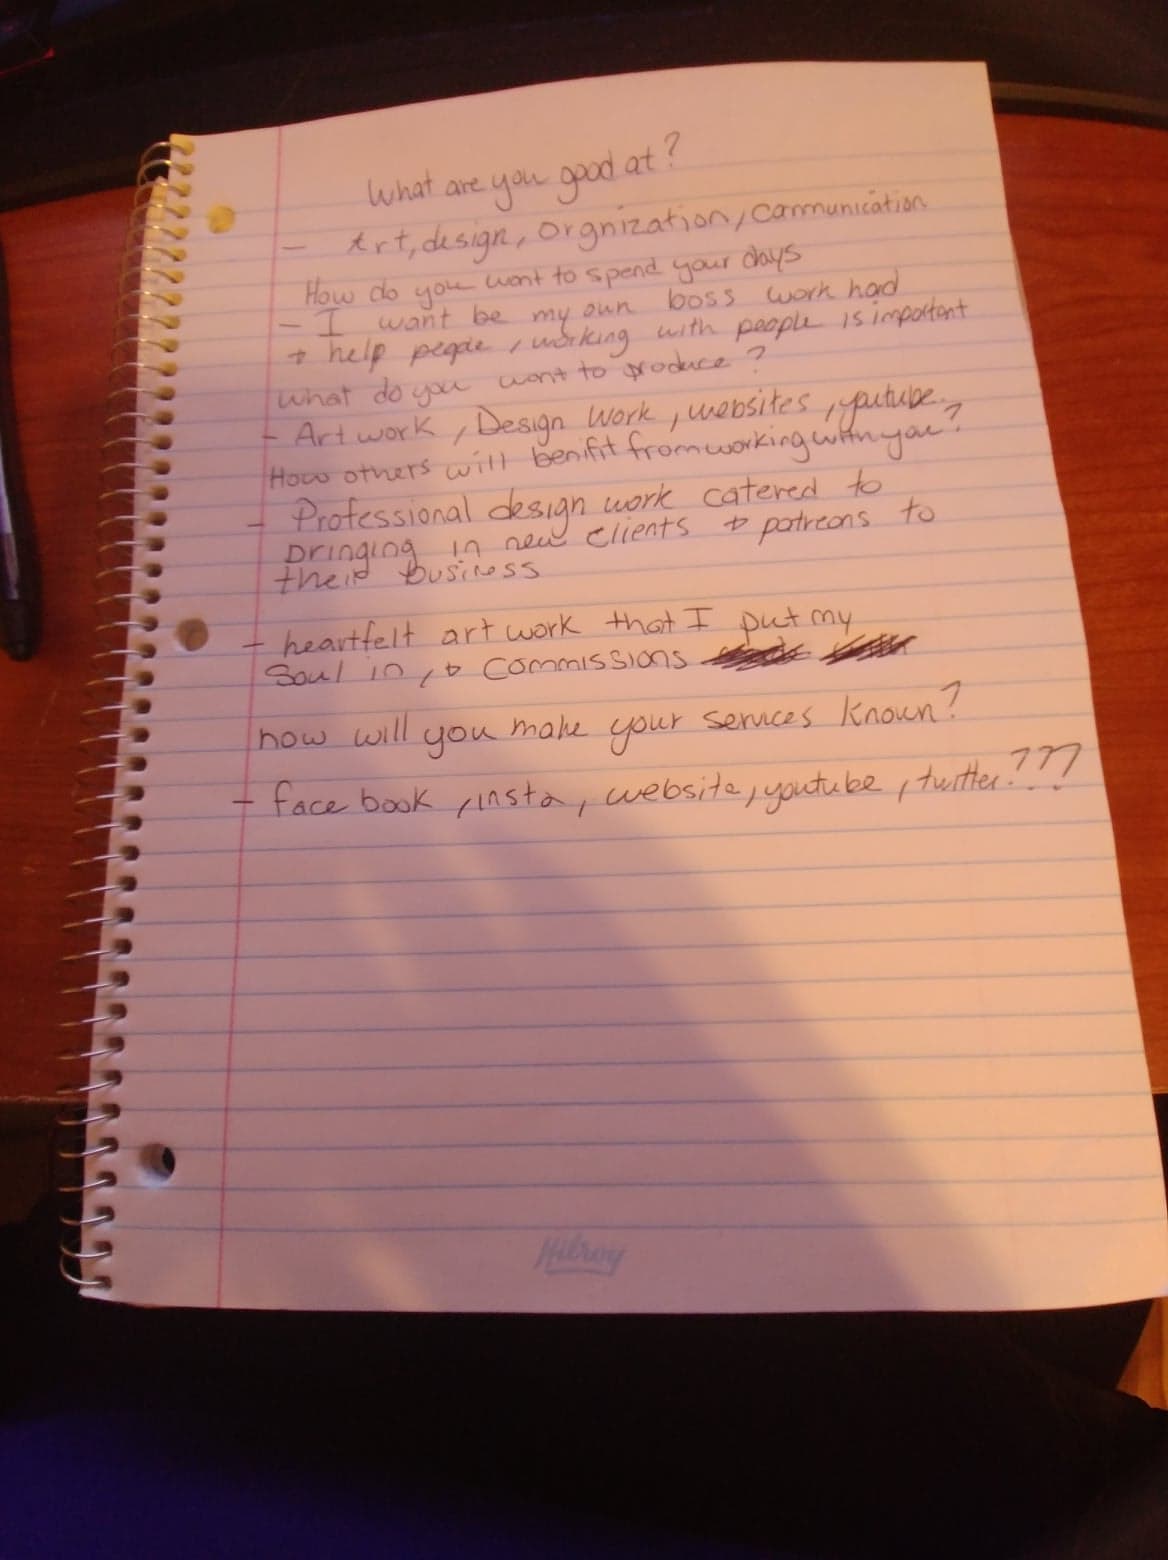 What are you good at?
- Art, design, orgnization, communication
How do you want to spend your days
- I want be my own boss work hard
+ help people, working with people is important
what do you want to produce?
- Art work, Design Work, websites, youtube.
How others will benifit from working with you?
- Professional design work catered to
bringing in new clients + patreons to
their business
- heartfelt art work that I put my
Soul in, + commissions
how will you make your services known?
- face book, insta, website, youtube, twitter???
Hilroy